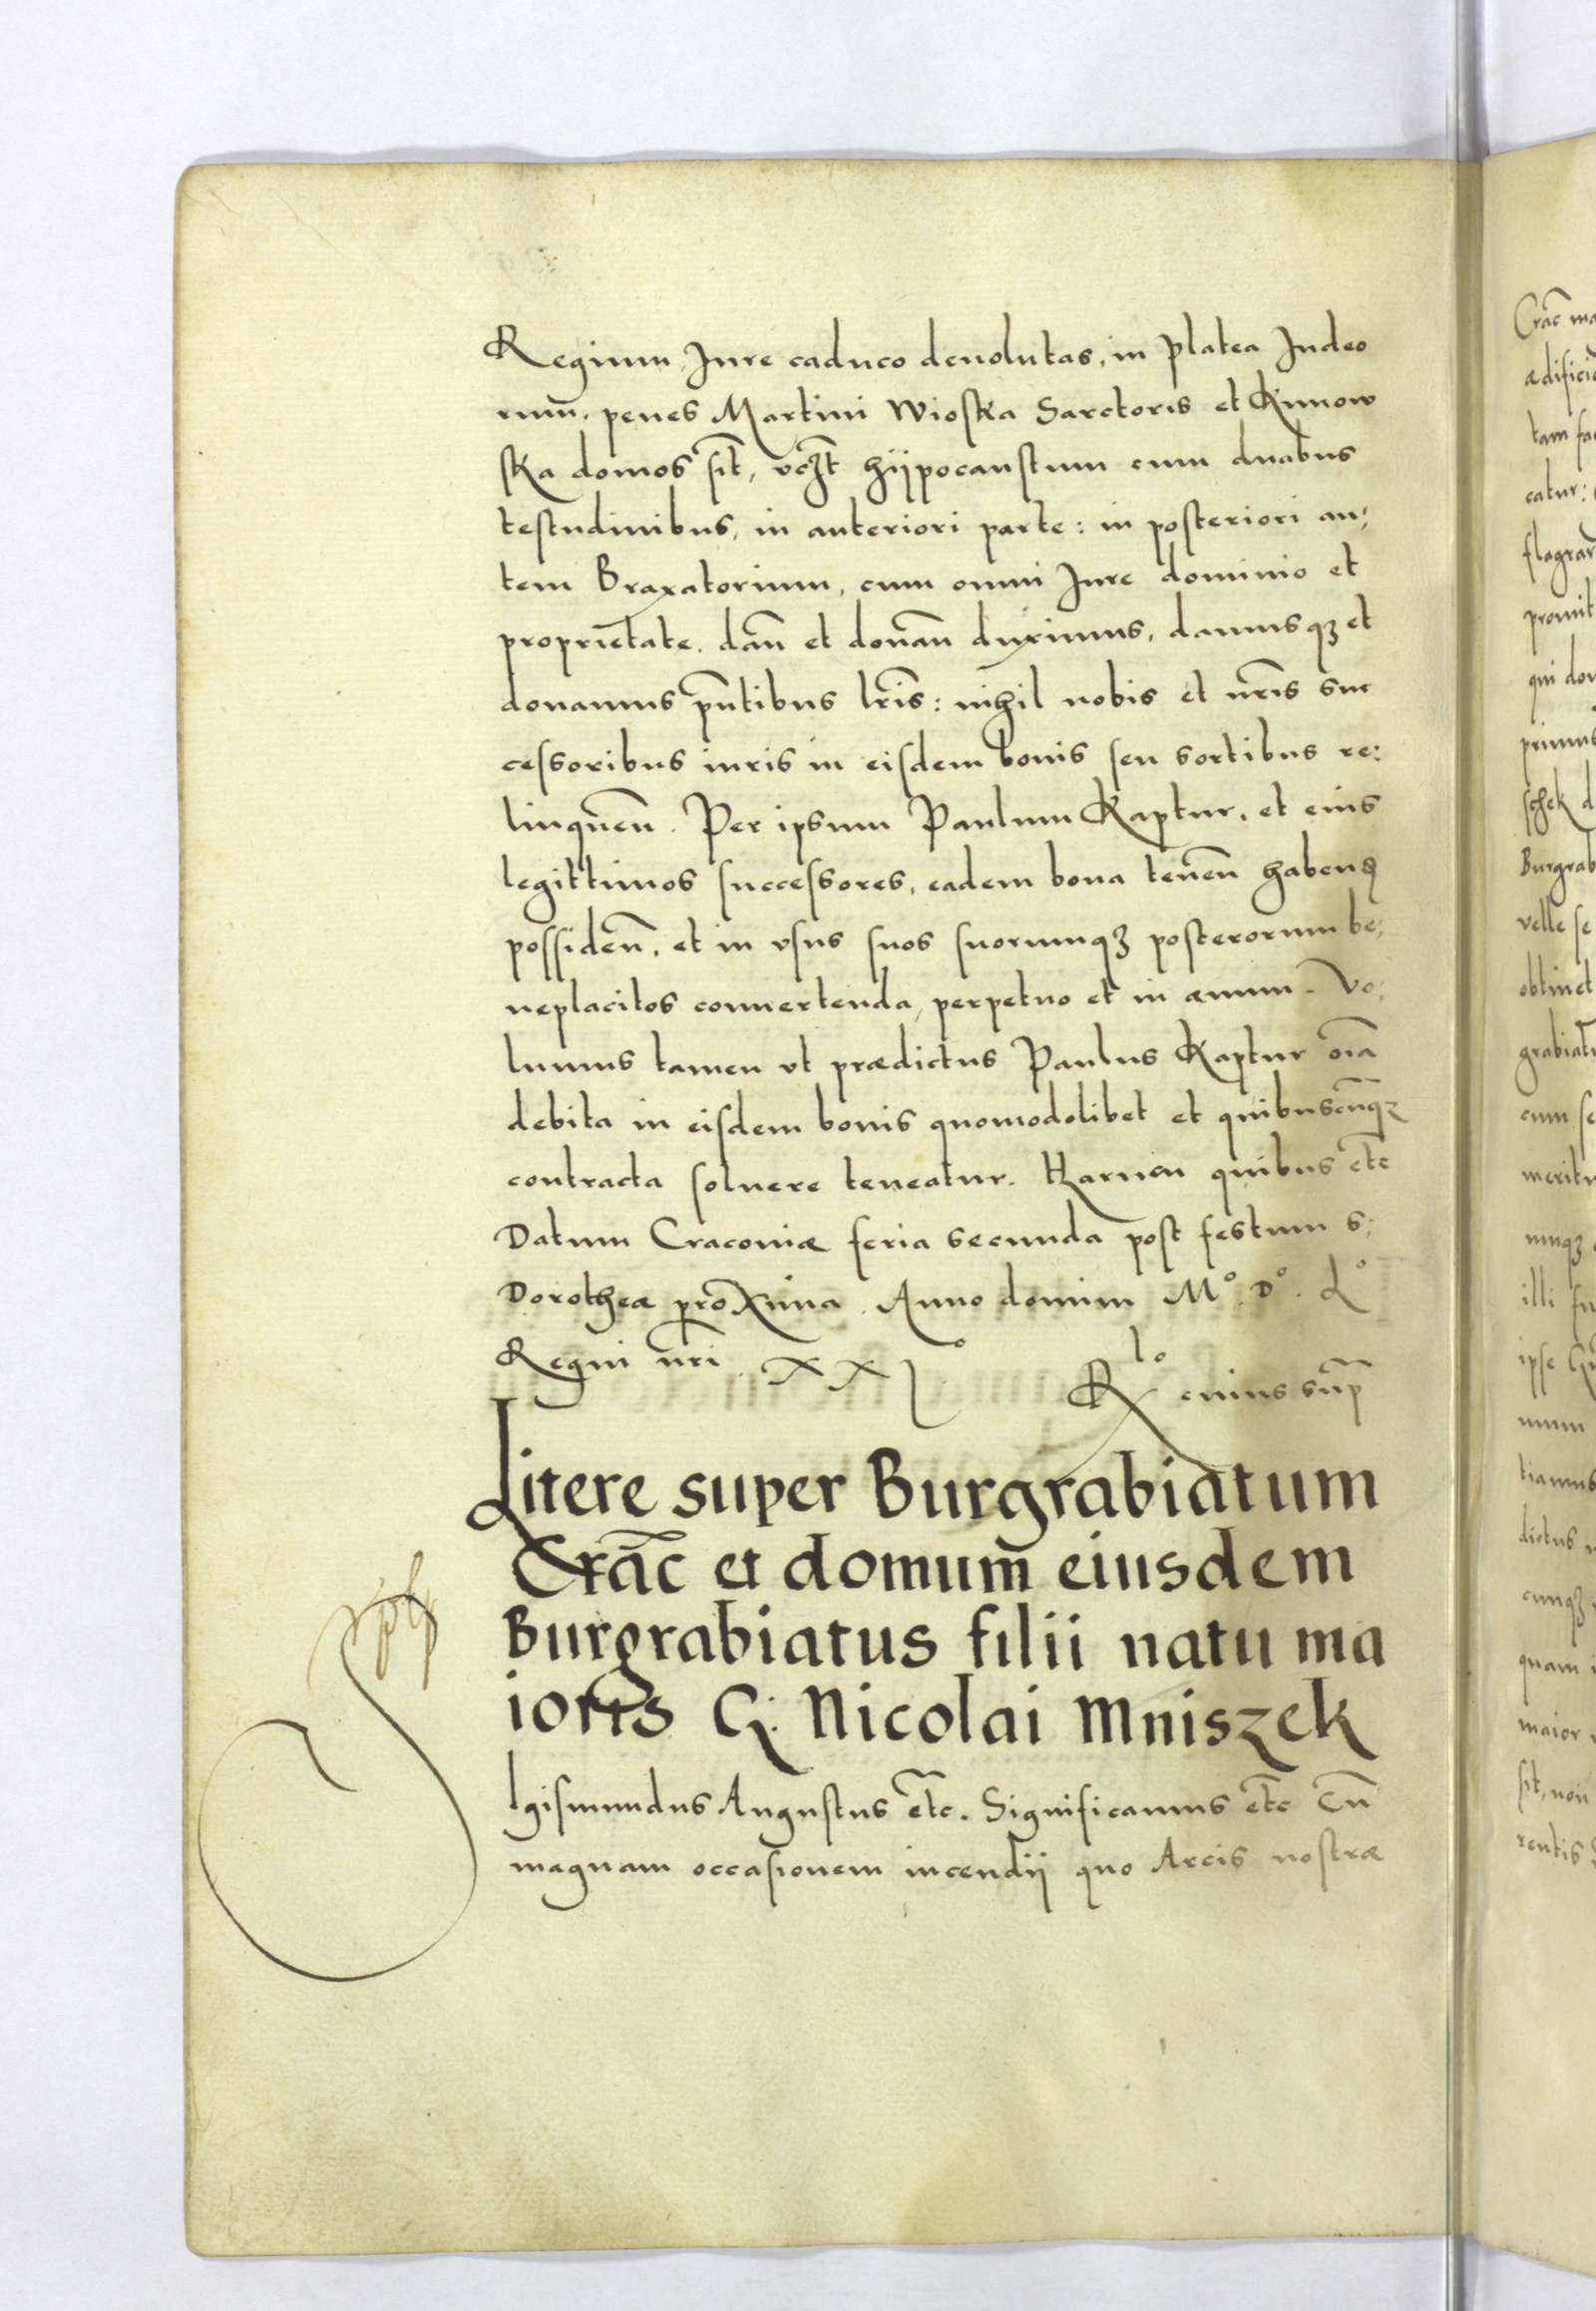 Regium Jure caduco deuolutas, in platea Judeo
rum, penes Martini Wioska Sarctoris et Kunow
ska domos sit̃, vcz̃t hÿpocaustum cum duabus
testudinibus, in anteriori parte: in posteriori au;
tem Braxatorium, cum omni Jure dominio et
proprietate. dañ et donañ duximus, damusqꝫ et
donamus pñtibus lr̃is: nihil nobis et nr̃is suc
cessoribus iuris in eisdem bonis seu sortibus re:
linqueñ. Per ipsum Paulum Kaptur, et eius
legittimos successores, eadem bona teneñ habend
possideñ, et in vsus suos suorumqꝫ posterorum be;
neplacitos conuertenda, perpetuo et in æuum. Vo;
lumus tamen vt prædictus Paulus Kaptur oı̃a
debita in eisdem bonis quomodolibet et quibuscũqꝫ
contracta soluere teneatur. Harum quibus etc̃
Datum Cracoviæ feria secunda post festum s;
Dorotheæ proxima. Anno domini Mº. Dº. Lº
Regni nr̃i. XXIº
Rlº cuius sup̃
Litere super Burgrabiatum
Crac̃ et domum eiusdem
Burgrabiatus filii natu ma
ioris G: Nicolai Mniszek
Sigismundus Augustus etc̃. Significamus etc̃ Cũ
magnam occasionem incendij quo Arcis nostræ
Crac̃ ma
ædifici
tam fa
catur:
flagrar
promit
qui do
primus
schek d
Burgrab
velle se
obtinet
grabiat
cum se
merit
umqꝫ
illi su
ipse
num
tiamus
dictus
cunqꝫ
quam
maior
sit, non
rentis